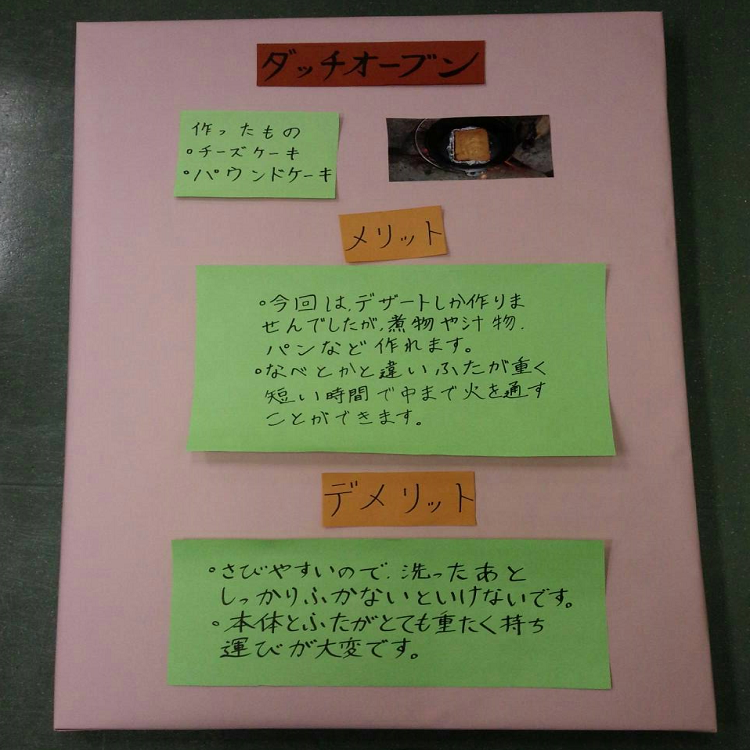 ダッチオーブン
作ったもの
。チーズケーキ
。パウンドケーキ
メリット
。今回は、デザートしか作りま
せんでしたが、煮物や汁物、
パンなど作れます。
。なべとかと違いふたが重く
短い時間で中まで火を通す
ことができます。
デメリット
。さびやすいので、洗ったあと
しっかりふかないといけないです。
。本体とふたがとても重たく持ち
運びが大変です。